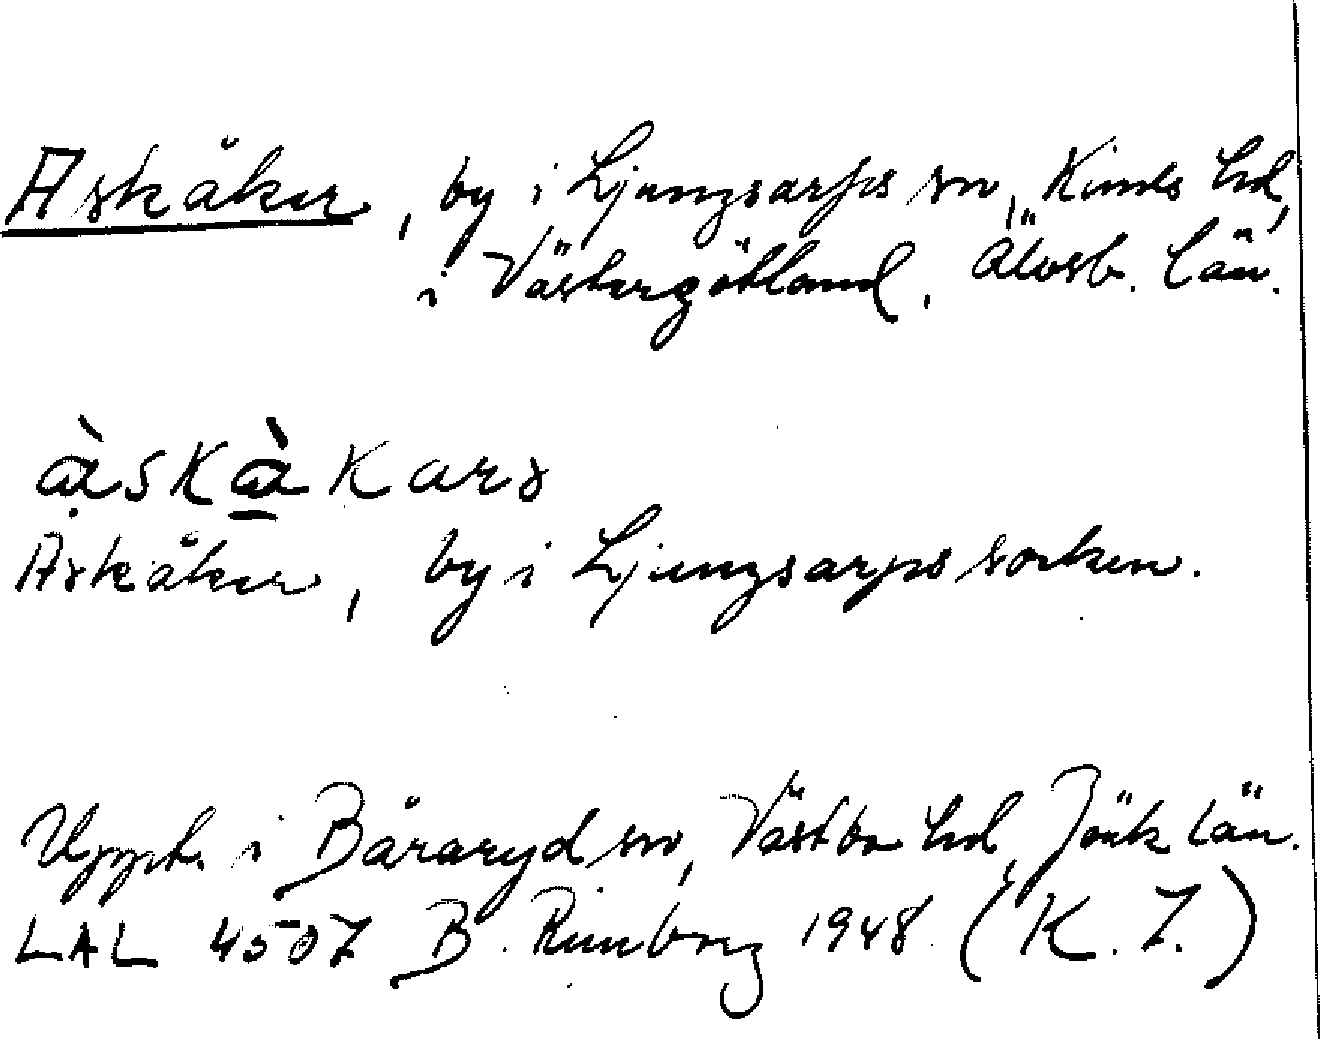 Askåker, by i Ljungsarps sn, Kinds hd,
i Västergötland. Älvsb. län.
Askåker, by i Ljungsarps socken.
Uppt. i Båraryd sn, Västbo hd, Jönk län.
LAL 4507 B. Rimborg 1948. (K. Z.)